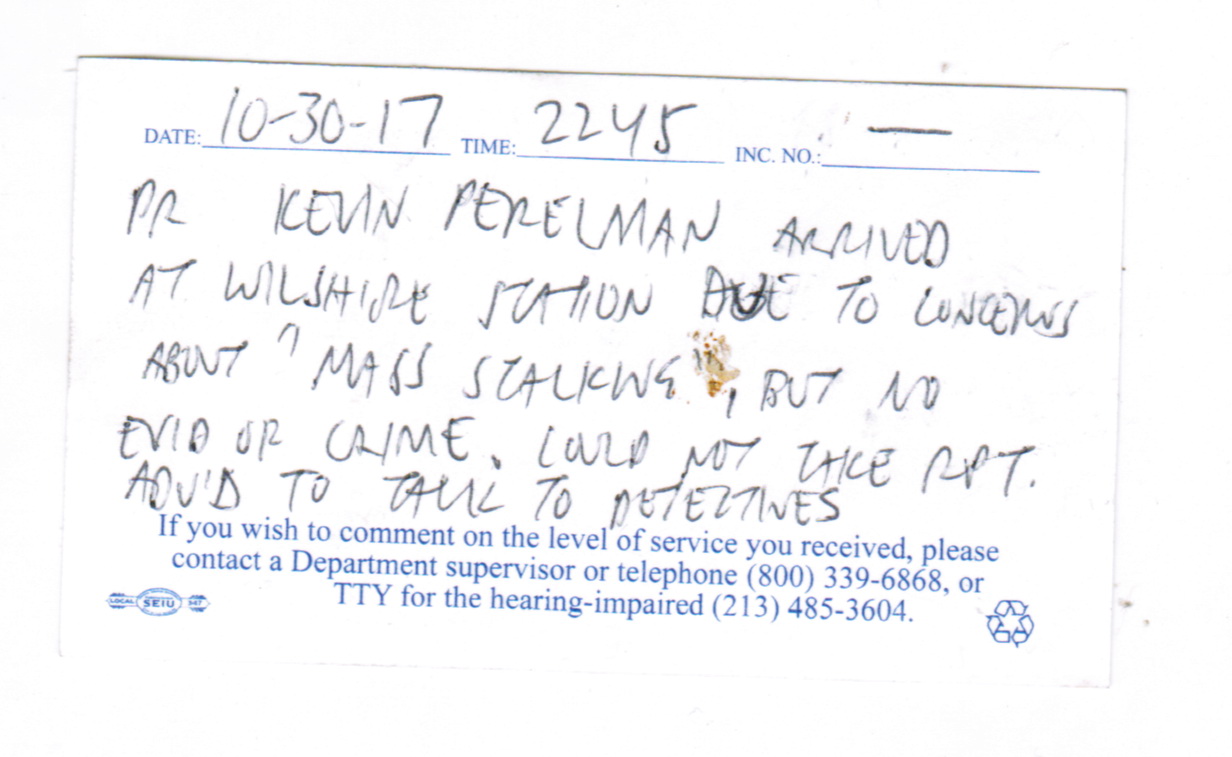 DATE: 10-30-17 TIME: 2245 INC. NO.: —
PR KEVIN PERELMAN ARRIVED
AT WILSHIRE STATION DUE TO CONCERNS
ABOUT "MASS STALKING", BUT NO
EVID OF CRIME. COULD NOT TAKE RPT.
ADV'D TO TALK TO DETECTIVES
If you wish to comment on the level of service you received, please
contact a Department supervisor or telephone (800) 339-6868, or
TTY for the hearing-impaired (213) 485-3604.
LOCAL SEIU 347